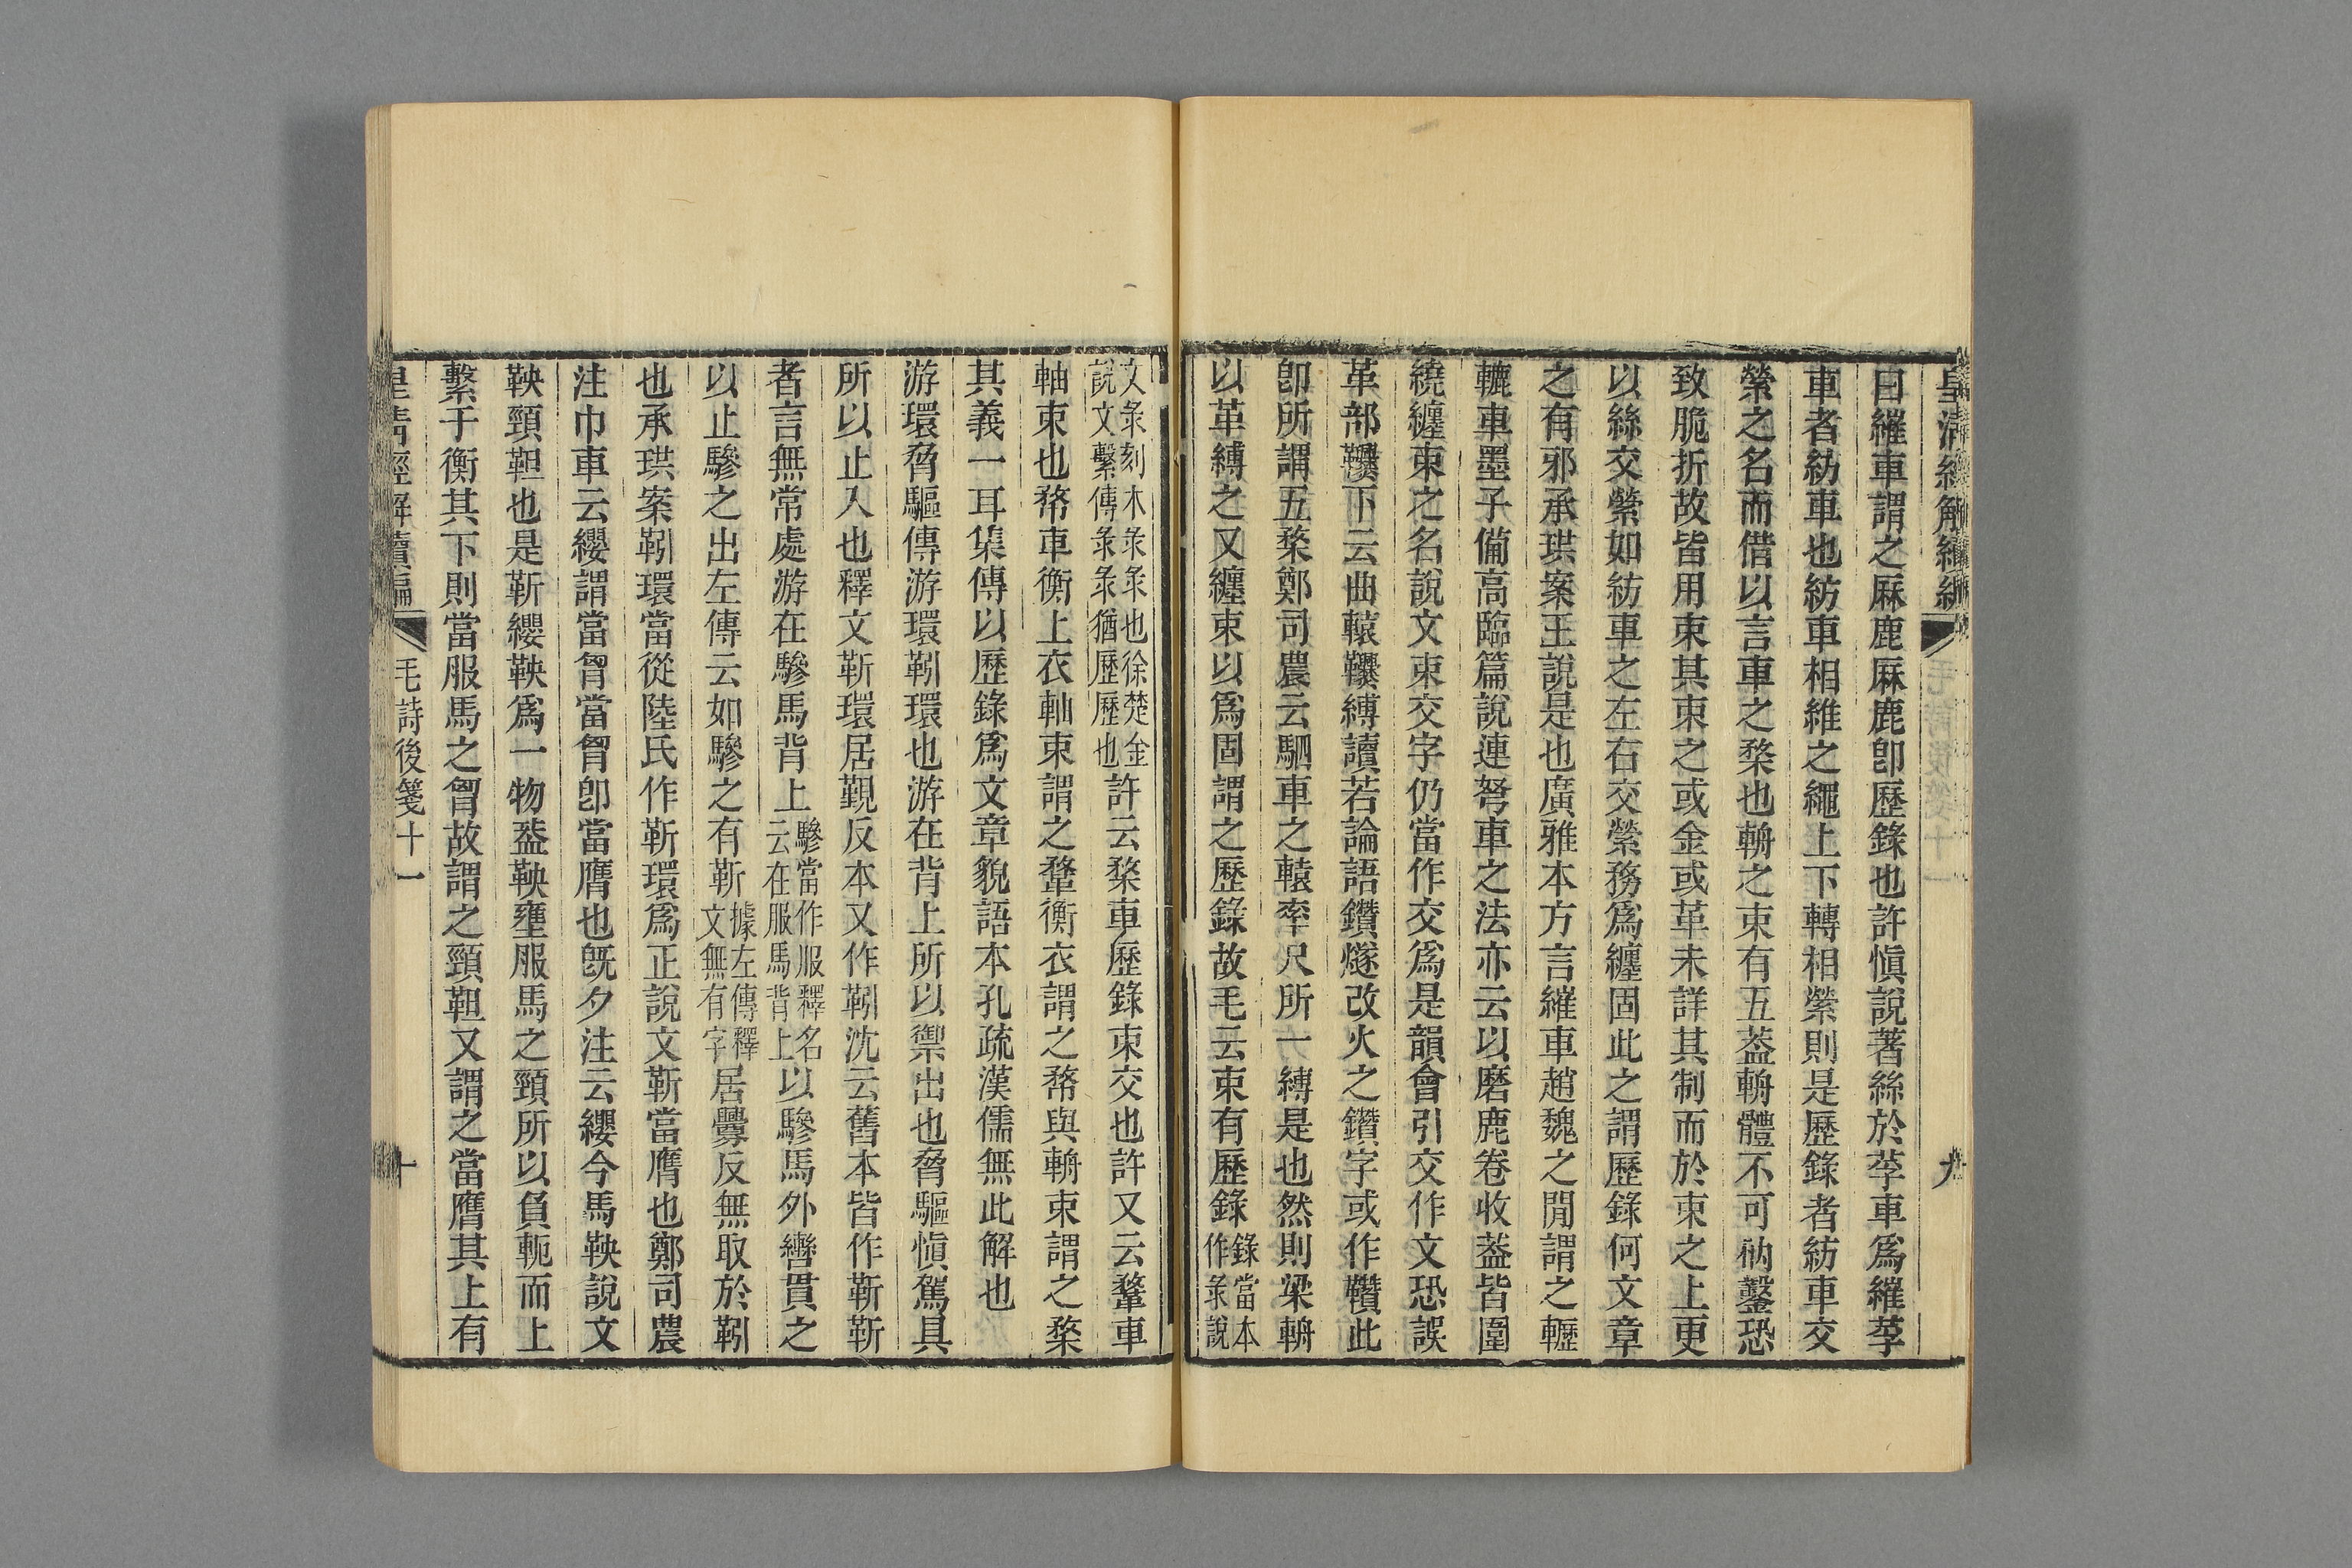 皇清經解續編 毛詩後箋十一 九
曰維車謂之麻鹿麻鹿卽歷錄也許愼說著絲於莩車爲維莩
車者紡車也紡車相維之繩上下轉相縈則是歷錄者紡車交
縈之名而借以言車之楘也輈之束有五葢輈體不可衲鑿恐
致脆折故皆用束其束之或金或革未詳其制而於束之上更
以絲交縈如紡車之左右交縈務爲纏固此之謂歷錄何文章
之有邪承珙案王說是也廣雅本方言維車趙魏之閒謂之轣
轆車墨子備高臨篇說連弩車之法亦云以磨鹿卷收葢皆圍
繞纏束之名說文束交字仍當作交爲是韻會引交作文恐誤
革部䡽下云曲轅䡽縛讀若論語鑽燧改火之鑽字或作䡽此
卽所謂五楘鄭司農云駟車之轅率尺所一縛是也然則梁輈
以革縛之又纏束以爲固謂之歷錄故毛云束有歷錄錄當本作彔說
文彔刻木彔彔也徐楚金說文繫傳彔彔猶歷歷也許云楘車歷錄束交也許又云鞪車
軸束也䋷車衡上衣軸束謂之鞪衡衣謂之䋷與輈束謂之楘
其義一耳集傳以歷錄爲文章貌語本孔疏漢儒無此解也
游環脅驅傳游環靷環也游在背上所以禦出也脅驅愼駕具
所以止入也釋文靳環居覲反本又作靷沈云舊本皆作靳靳
者言無常處游在驂馬背上驂當作服釋名云在服馬背上以驂馬外轡貫之
以止驂之出左傳云如驂之有靳據左傳釋文無有字居釁反無取於靷
也承珙案靷環當從陸氏作靳環爲正說文靳當膺也鄭司農
注巾車云纓謂當胷當胷卽當膺也旣夕注云纓今馬鞅說文
鞅頸靼也是靳纓鞅爲一物葢鞅壅服馬之頸所以負軛而上
繫于衡其下則當服馬之胷故謂之頸靼又謂之當膺其上有
皇清經解續編 毛詩後箋十一 十